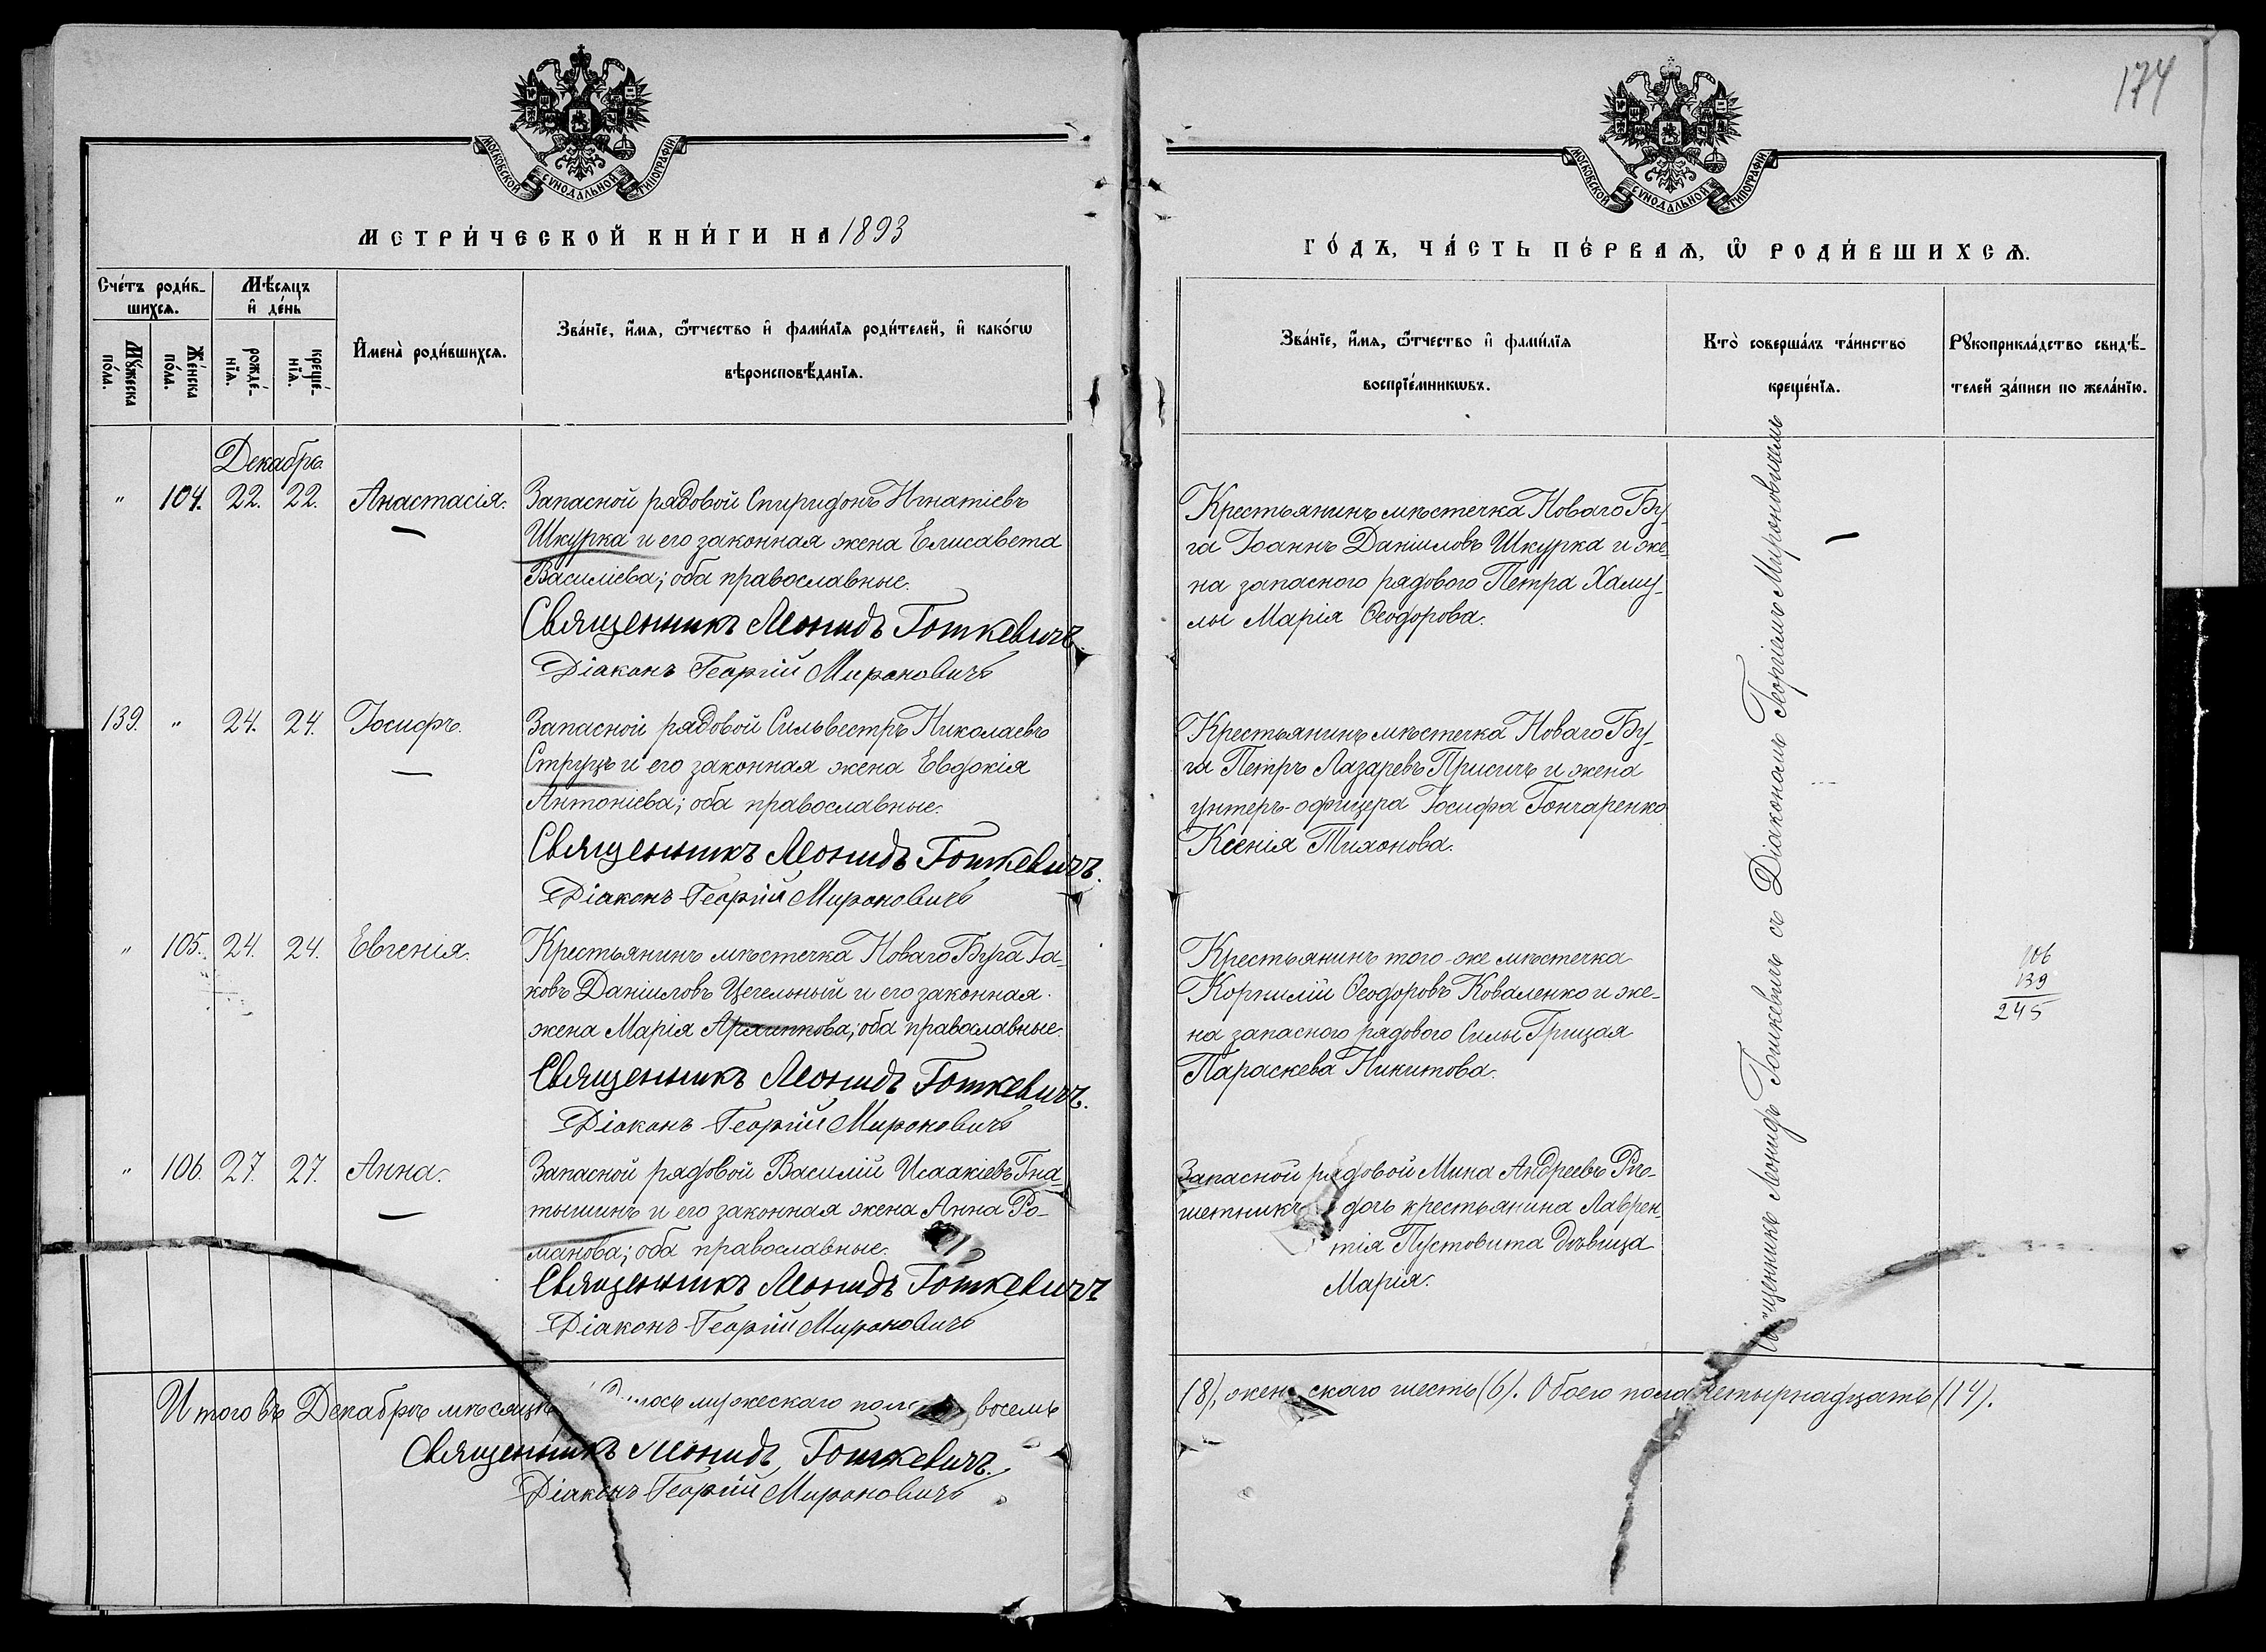 174
МОСКОВСКОЙ СУНОДАЛЬНОЙ ТИПОГРАФІИ.
МЕТРИ́ЧЕСКОЙ КНИ́ГИ НА 1893
Сче́тъ роди́в-
шихсѧ.
Мꙋ́жеска по́ла.
Же́нска по́ла.
Мѣ́сѧцъ
и҆ де́нь
рожде́-
нїѧ.
креще́-
нїѧ.
И҆мена̀ роди́вшихсѧ.
Зва́нїе, и҆́мѧ, ѻ҆́тчество и҆ фами́лїѧ роди́телей, и҆ како́гѡ
вѣроисповѣ́данїѧ.
Декабрь
" 104. 22. 22. Анастасія. Запасной рядовой Спиридонъ Игнатіевъ
Шкурка и его законная жена Елисавета
Василіева; оба православные.
Священникъ Леонидъ Гошкевичъ.
Діаконъ Георгій Мироновичъ
139. " 24. 24. Іосифъ. Запасной рядовой Сильвестръ Николаевъ
Струцъ и его законная жена Евдокія
Антоніева; оба православные.
Священникъ Леонидъ Гошкевичъ.
Діаконъ Георгій Мироновичъ
" 105. 24. 24. Евгенія. Крестьянинъ мѣстечка Новаго Буга Іа-
ковъ Даніиловъ Цегельный и его законная
жена Марія Архиппова; оба православные.
Священникъ Леонидъ Гошкевичъ.
Діаконъ Георгій Мироновичъ
" 106. 27. 27. Анна. Запасной рядовой Василій Исаакіевъ Гна-
тышинъ и его законная жена Анна Ро-
манова; оба православные.
Священникъ Леонидъ Гошкевичъ
Діаконъ Георгій Мироновичъ
Итого въ Декабрѣ мѣсяцѣ мужескаго пола восемь
Священникъ Леонидъ Гошкевичъ.
Діаконъ Георгій Мироновичъ
МОСКОВСКОЙ СУНОДАЛЬНОЙ ТИПОГРАФІИ.
ГО́ДЪ, ЧА́СТЬ ПЕ́РВАѦ, Ѡ҆ РОДИ́ВШИХСѦ.
Зва́нїе, и҆́мѧ, ѻ҆́тчество и҆ фами́лїѧ
воспрїе́мникѡвъ.
Кто̀ соверша́лъ та́инство
креще́нїѧ.
Рꙋкоприкла́дство свидѣ́-
телей за́писи по жела́нїю.
Крестьянинъ мѣстечка Новаго Бу-
га Іоаннъ Даніиловъ Шкурка и же-
на запасного рядового Петра Хаму-
лы Марія Ѳеодорова.
Крестьянинъ мѣстечка Новаго Бу-
га Петръ Лазаревъ Присичъ и жена
унтеръ-офицера Іосифа Гончаренко
Ксенія Тихонова.
Крестьянинъ того-же мѣстечка
Корнилій Ѳеодоровъ Коваленко и же-
на запасного рядового Силы Грицая
Параскева Никитова.
Запасной рядовой Мина Андреевъ Рѣ-
шетникъ дочь крестьянина Лаврен-
тія Пустовита дѣвица
Марія.
Священникъ Леонидъ Гошкевичъ съ Діакономъ Георгіемъ Мироновичемъ
106
139
245
(8), женскаго шесть (6). Обоего пола четырнадцать (14).